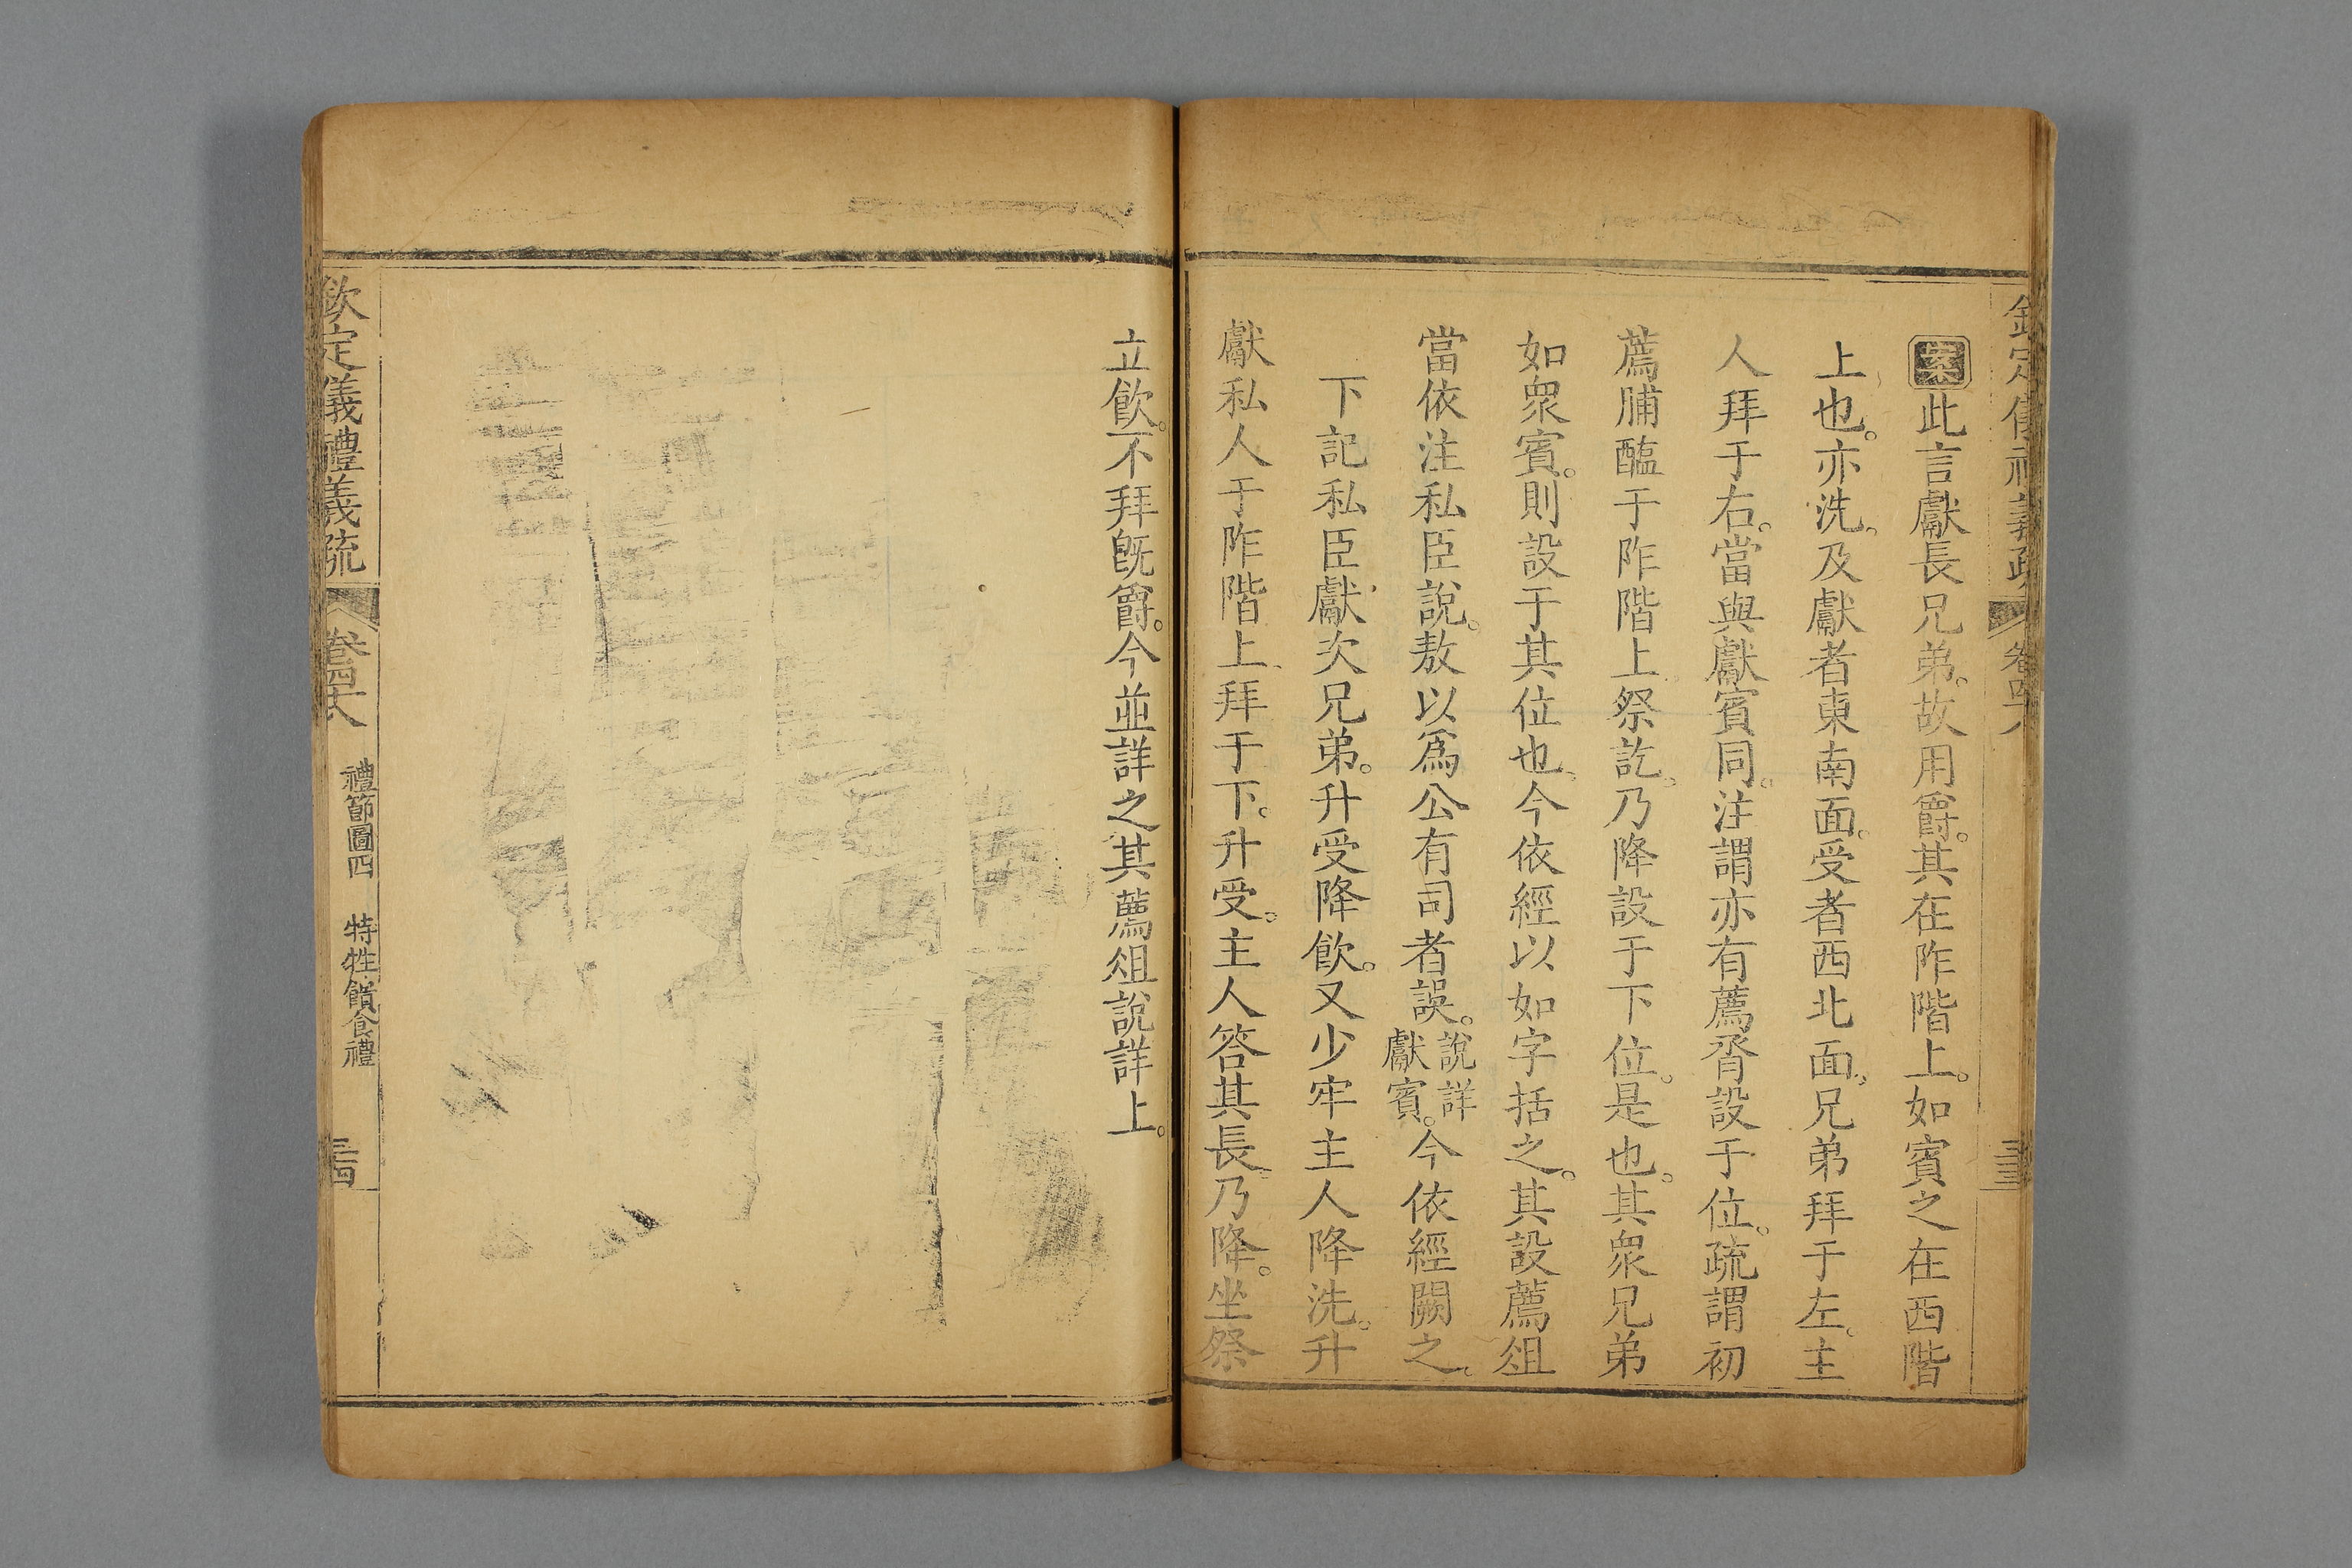 案此言獻長兄弟。故用爵。其在阼階上。如賓之在西階
上也。亦洗。及獻者東南面。受者西北面。兄弟拜于左。主
人拜于右。當與獻賓同。注謂亦有薦脀設于位。疏謂初
薦脯醢于阼階上。祭訖。乃降設于下位。是也。其衆兄弟
如衆賓。則設于其位也。今依經以如字括之。其設薦俎
當依注私臣說。敖以爲公有司者誤。說詳獻賓。今依經闕之。
下記私臣獻次兄弟。升受降飲。又少牢主人降洗。升
獻私人于阼階上。拜于下。升受。主人答其長。乃降。坐祭
立飲。不拜旣爵。今並詳之其薦俎說詳上。
欽定儀禮義疏
卷四十八
禮節圖四 特牲饋食禮
三四